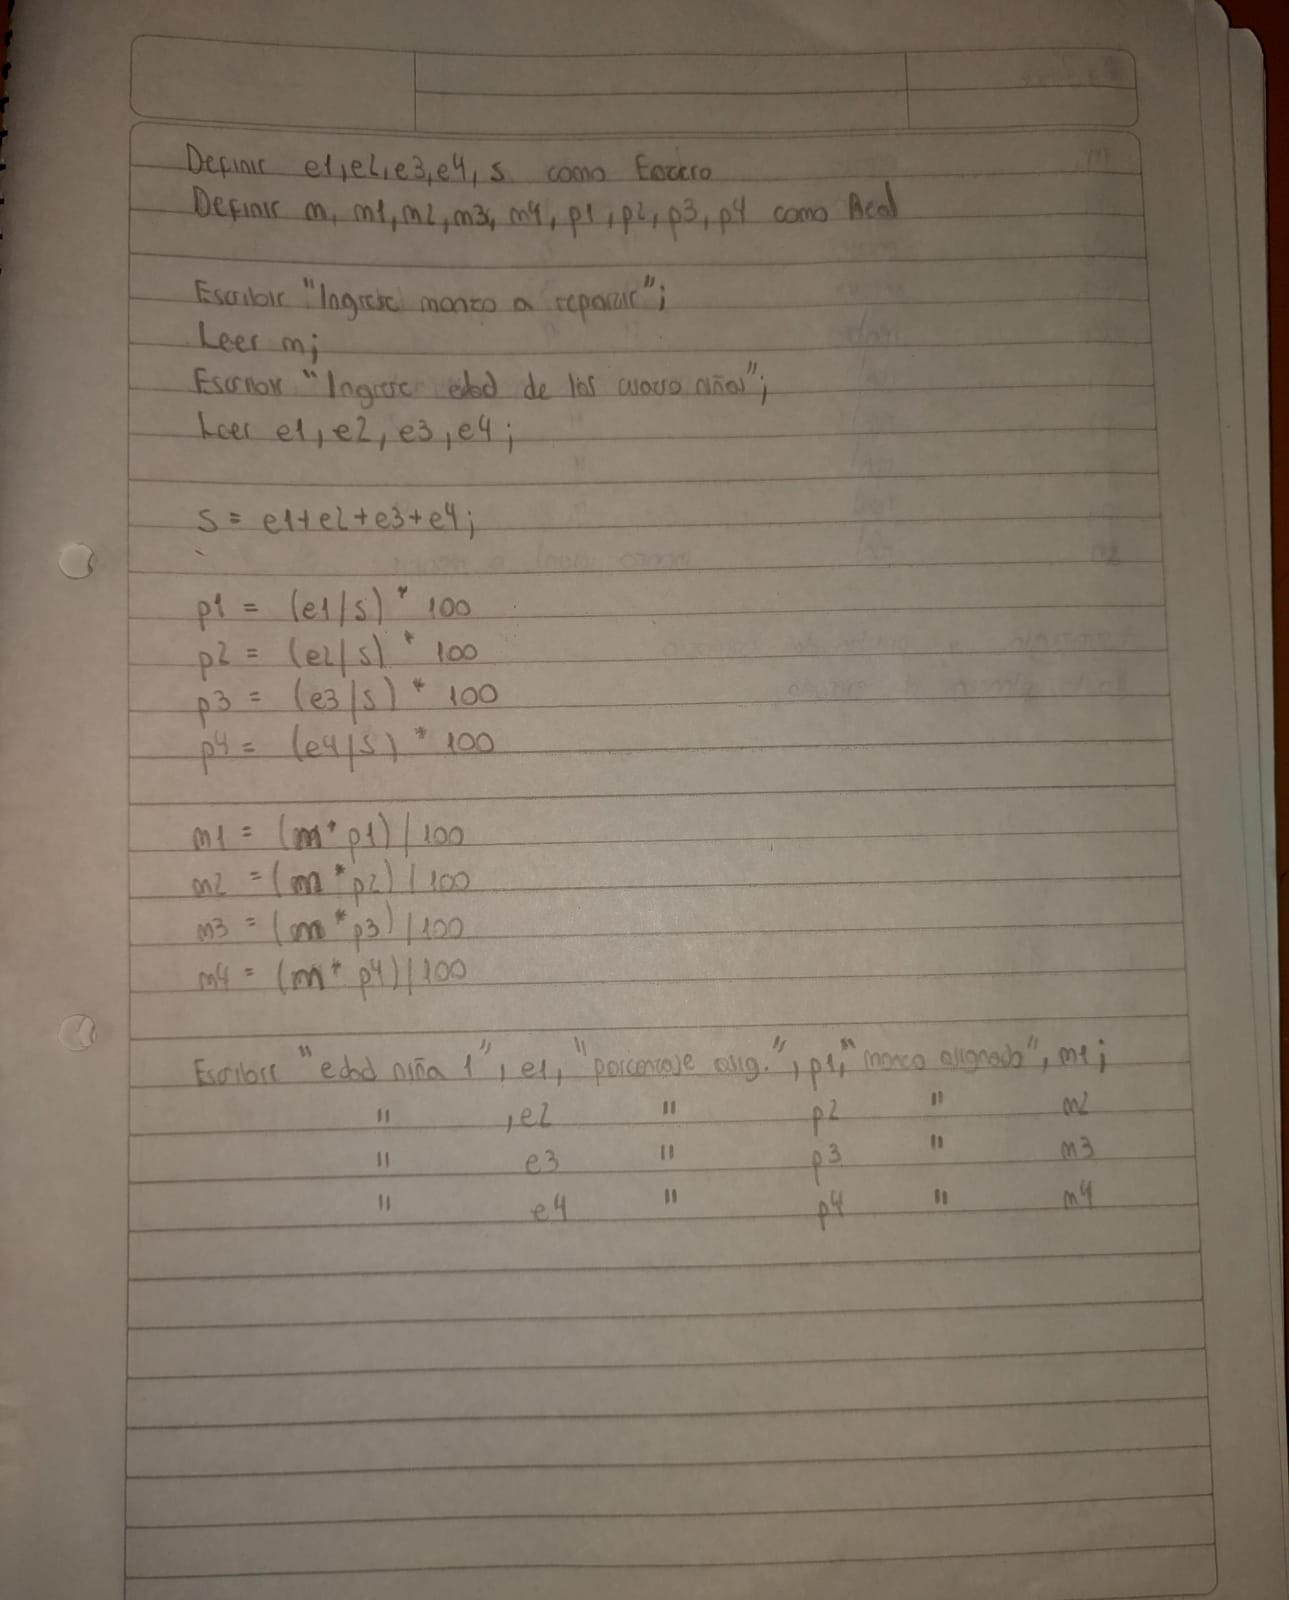 Definir e1, e2, e3, e4, s como Entero
Definir m, m1, m2, m3, m4, p1, p2, p3, p4 como Real
Escribir "Ingrese monto a repartir";
Leer m;
Escribir "Ingrese edad de los cuatro niños";
Leer e1, e2, e3, e4;
s = e1+e2+e3+e4;
p1 = (e1/s) * 100
p2 = (e2/s) * 100
p3 = (e3/s) * 100
p4 = (e4/s) * 100
m1 = (m * p1) / 100
m2 = (m * p2) / 100
m3 = (m * p3) / 100
m4 = (m * p4) / 100
Escribir "edad niña 1", e1, "porcentaje asig.", p1, "monto asignado", m1;
" , e2 " p2 " m2
" e3 " p3 " m3
" e4 " p4 " m4